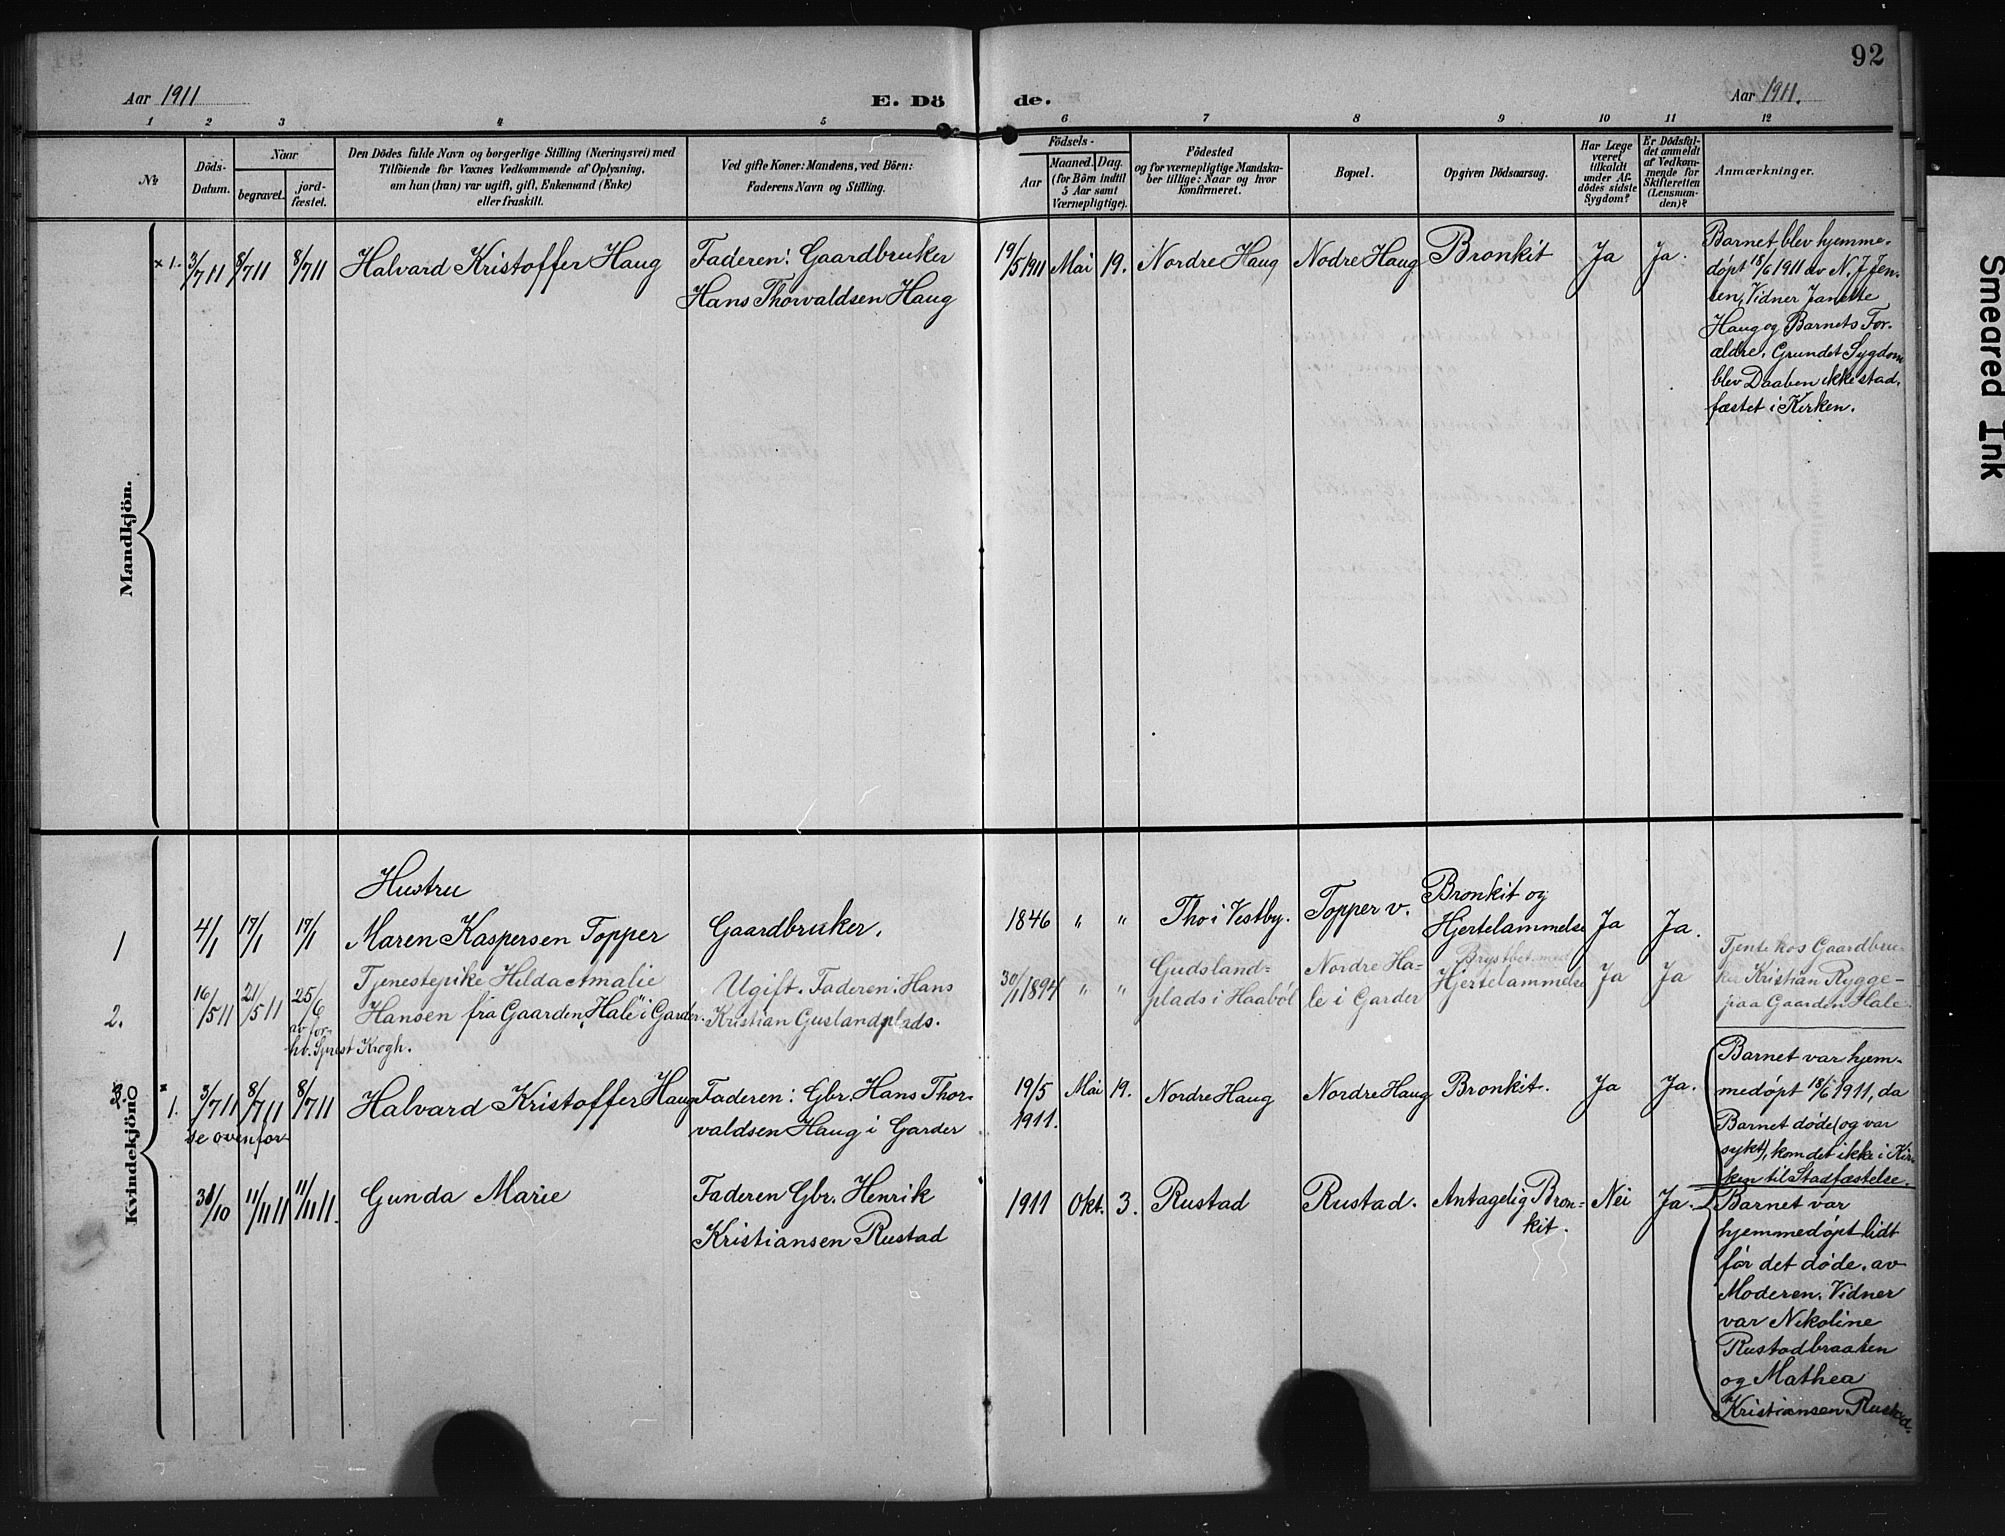 92
Aar 1911
E. Dö
de.
Aar 1911.
1 2 3 4 5 6 7 8 9 10 11 12
No
Döds-
Datum.
Naar
begravet.
jord-
fæstet.
Den Dödes fulde Navn og borgerlige Stilling (Næringsvei) med
Tilföiende for Voxnes Vedkommende af Oplysning,
om han (hun) var ugift, gift, Enkemand (Enke)
eller fraskilt.
Ved gifte Koner: Mandens, ved Börn:
Faderens Navn og Stilling.
Födsels-
Aar
Maaned. Dag.
(for Börn indtil
5 Aar samt
Værnepligtige).
Födested
og for værnepligtige Mandska-
ber tillige: Naar og hvor
Konfirmeret.
Bopæl.
Opgiven Dödsaarsag.
Har Læge
været
tilkaldt
under Af-
dödes sidste
Sygdom?
Er Dödsfal-
det anmeldt
af Vedkom-
mende for
Skifteretten
(Lensman-
den)?
Anmærkninger.
Mandkjön.
x 1. 3/7 11 8/7 11 8/7 11 Halvard Kristoffer Haug
Faderen: Gaardbruker
Hans Thorvaldsen Haug
19/5 1911 Mai 19. Nordre Haug Nodre Haug Bronkit Ja Ja.
Barnet blev hjemme-
døpt 18/6 1911 av N. J. Jen-
sen, Vidner Janette
Haug og Barnets For-
ældre. Grundet Sygdom
blev Daaben ikke stad-
fæstet i Kirken.
Kvindekjön
1 4/1 17/1 17/1
Hustru
Maren Kaspersen Topper
Gaardbruker.
1846 " " Tho i Vestby. Topper v.
Bronkit og
Hjertelammelse
Ja Ja.
2. 16/5 11 21/5 11 25/6
av for-
hv. Sprest Krogh.
Tjenestepike Hilda Amalie
Hansen fra Gaarden Hale i Garder.
Ugift. Faderen: Hans
Kristian Guslandplads.
30/11 1894 " "
Gudsland-
plads i Haabøl
Nordre Ha-
le i Garder
Brystbet. med
Hjertelammelse
Ja Ja
Tjente hos Gaardbru-
ker Kristian Rygge-
paa Gaarden Hale.
x 1. 3/7 11 8/7 11 8/7 11
se ovenfor
Halvard Kristoffer Haug
Faderen: Gbr. Hans Thor-
valdsen Haug i Garder
19/5
1911.
Mai 19. Nordre Haug Nordre Haug Bronkit. Ja Ja.
Barnet var hjem-
medøpt 18/6 1911, da
Barnet døde (og var
sykt), kom det ikke i Kir-
ken til Stadfæstelse.
11/11 11 11/11 11. Gunda Marie
Faderen Gbr. Henrik
Kristiansen Rustad
1911 Okt. 3. Rustad Rustad.
Antagelig Bron-
kit.
Nei Ja.
Barnet var
hjemmedøpt lidt
før det døde. av
Moderen. Vidner
var Nikoline
Rustadbraaten
og Mathea
Kristiansen Rustad.
Smeared Ink